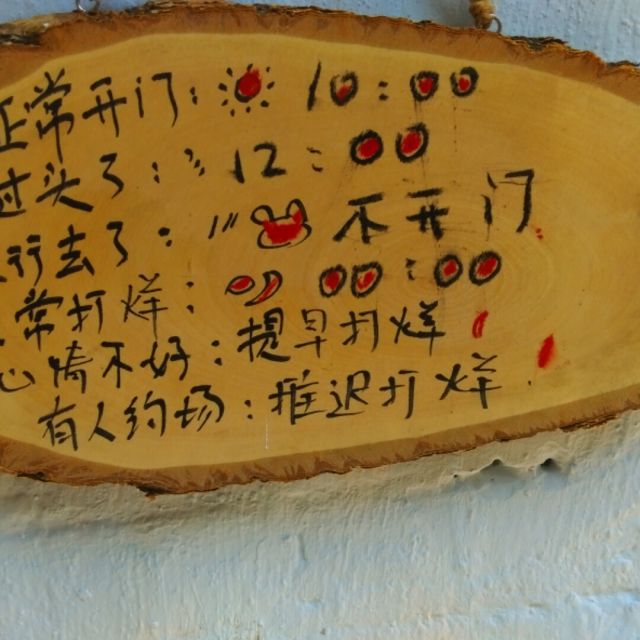 正常开门: 10:00
过头了: 〃 12:00
行去了: 〃 不开门
常打烊: 00:00
心情不好: 提早打烊!
有人约场: 推迟打烊.